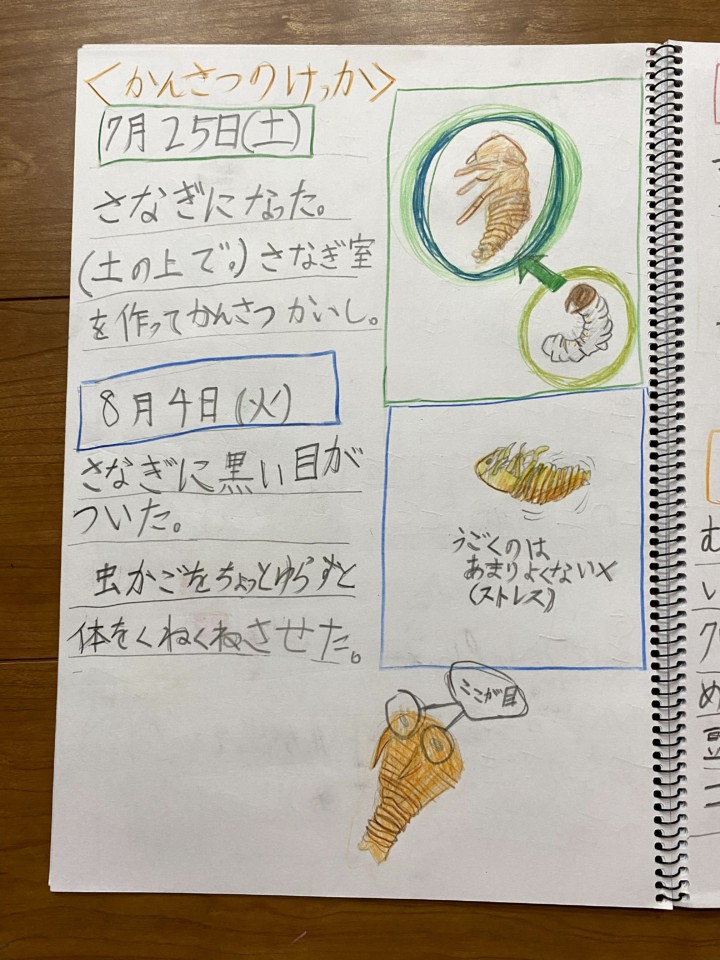 <かんさつのけっか>
7月25日(土)
さなぎになった。
(土の上で。)さなぎ室
を作ってかんさつかいし。
8月4日(火)
さなぎに黒い目が
ついた。
虫かごをちょっとゆらすと
体をくねくねさせた。
うごくのは
あまりよくない×
(ストレス)
ここが目
む
い
め
豆